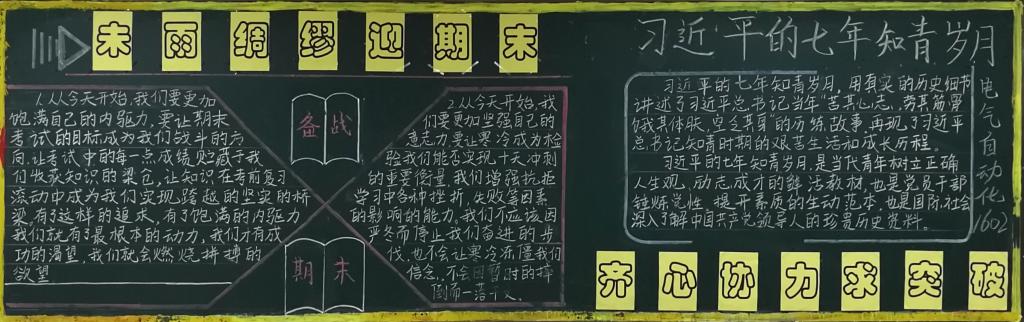 未雨绸缪迎期末
1.从今天开始,我们要更加
饱满自己的内驱力,要让期末
考试的目标成为我们战斗的方
向,让考试中的每一点成绩贮藏于我
们收获知识的粮仓,让知识在考前复习
流动中成为我们实现跨越的坚实的桥
梁,有了这样的追求,有了饱满的内驱力
我们就有了最根本的动力,我们才有成
功的渴望,我们就会燃烧拼搏的
欲望
备战
期末
2.从今天开始,我
们要更加坚强自己的
意志力,要让寒冷成为检
验我们能否实现十天冲刺
的重要衡量,我们增强抗拒
学习中各种挫折,失败等因素
的影响的能力,我们不应该因
严冬而停止我们奋进的步
伐,也不会让寒冷冻僵我们
信念,不会因暂时的摔
倒而一落千丈。
习近平的七年知青岁月
习近平的七年知青岁月,用真实的历史细节
讲述了习近平总书记当年“苦其心志,劳其筋骨
饿其体肤,空乏其身”的历练故事,再现了习近平
总书记知青时期的艰苦生活和成长历程。
习近平的七年知青岁月,是当代青年树立正确
人生观,励志成才的鲜活教材,也是党员干部
锤炼党性,提升素质的生动范本,也是国际社会
深入了解中国共产党领导人的珍贵历史资料。
电气自动化1602
齐心协力求突破